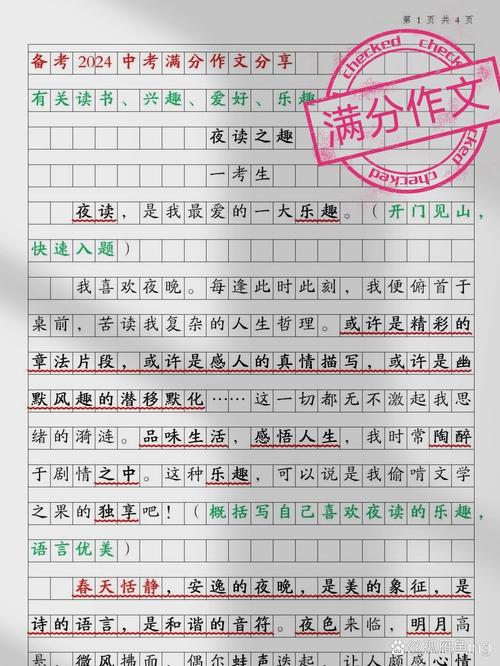 第 1 页 共 4 页
备考2024中考满分作文分享
有关读书、兴趣、爱好、乐趣
checked
满分作文
checked
夜读之趣
一考生
夜读，是我最爱的一大乐趣。（开门见山，
快速入题）
我喜欢夜晚。每逢此时此刻，我便俯首于
桌前，苦读我复杂的人生哲理。或许是精彩的
章法片段，或许是感人的真情描写，或许是幽
默风趣的潜移默化……这一切都无不激起我思
绪的漪涟。品味生活，感悟人生，我时常陶醉
于剧情之中。这种乐趣，可以说是我偷啃文学
之果的独享吧！（概括写自己喜欢夜读的乐趣，
语言优美）
春天恬静，安逸的夜晚，是美的象征，是
诗的语言，是和谐的音符。夜色来临，明月高
悬，微风拂面，偶尔蛙声迭起，让人颇感心情